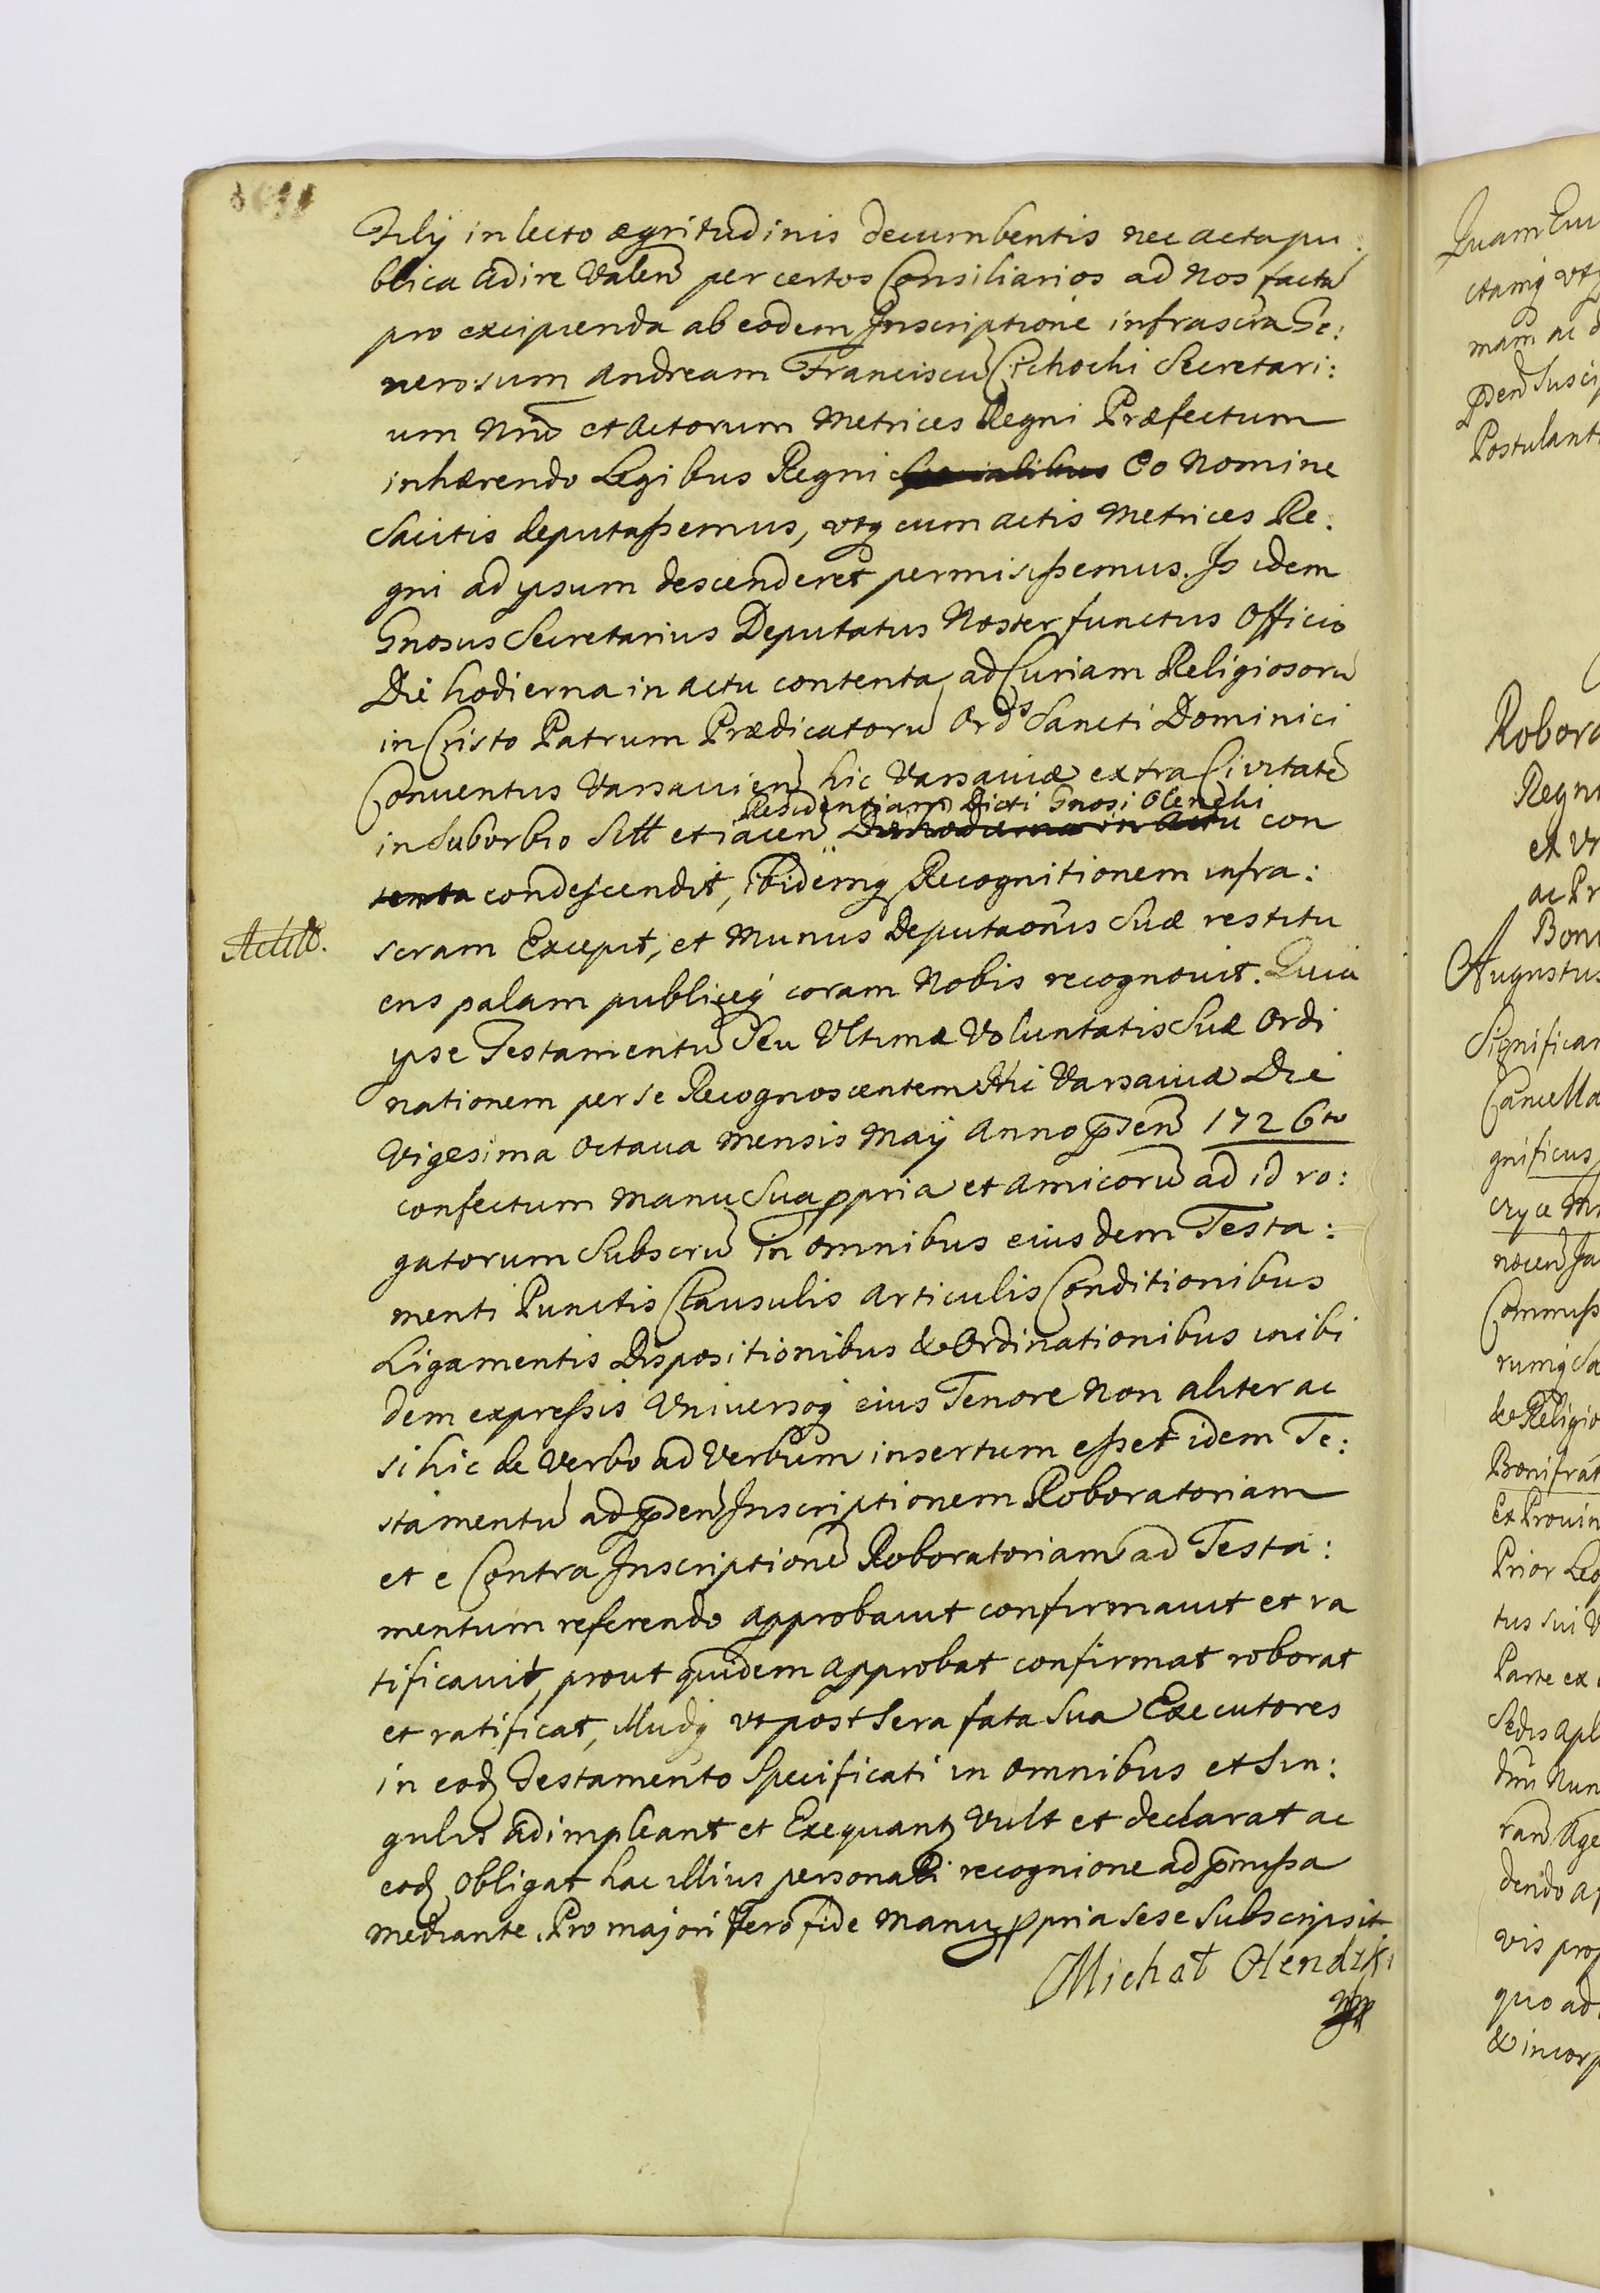 Filÿ in lecto ægritudinis decumbentis nec acta pu:
blica adire Valen per certos Consiliarios ad Nos facta
pro excipienda ab eodem Inscriptione infrascra Ge:
nerosum Andream Franciscu Cichocki Secretari:
um Nrm et Actorum Metrices Regni Præfectum
inhærendo Legibus Regni specialibus Eo Nomine
sacitis deputassemus, vtq cum actis Metrices Re:
gni ad ipsum descenderet permisissemus. Is idem
Gnosus Secretarius Deputatus Noster functus Officio
Die hodierna in actu contenta ad Curiam Religiosoru
in Cristo Patrum Prædicatoru Ords Sancti Dominici
Conventus Varsavien hic Varsaviæ extra Civitate
Residentiam Dicti Gnosi Olendzki
in Suborbio Sitt et iacen Die hodierna in actu con
tenta condescendit, ibidemq Recognitionem infra:
Actum
scram Excepit, et Munus Deputaonis Suæ restitu
ens palam publiceq coram Nobis recognovit. Quia
ipse Testamentu Seu Vltimæ Voluntatis Suæ Ordi
nationem per se Recognoscentem Hic Varsaviæ Die
Vigesima Octava Mensis Maÿ Anno pden 1726to
confectum Manu Sua ppria et Amicoru ad id ro:
gatorum Subscru in omnibus eiusdem Testa:
menti Punctis Clausulis Articulis Conditionibus
Ligamentis Dispositionibus & Ordinationibus inibi
dem expressis Vniversoq eius Tenore Non aliter ac
si hic de Verbo ad Verbum insertum esset idem Te:
stamentu ad pden Inscriptionem Roboratoriam
et e Contra Inscriptione Roboratoriam ad Testa:
mentum referendo approbavit confirmavit et ra
tificavit, prout quidem approbat confirmat roborat
et ratificat, illudq vt post Sera fata Sua Executores
in eod Testamento Specificati in omnibus et Sin:
gulis adimpleant et Exequant Vult et declarat ac
eod Obligat hac illius personali recognione ad pmissa
mediante. Pro majori Vero fide Manu ppria sese Subscripsit
Michał Olendzki
mp
Quam Eu
ctamq vt
mam ac d
pden Susci
Postulant
Robora
Regni
et Vr
ac Pr
Boni
Augustus
Significam
Cancella
gnificus
czyce
nocen Ja
Commiss
rumq Sa
& Religio
Bonifrat
Et Provin
Prior Leo
tus sui V
Parte ex
Sedis Apl
dmi Nun
ran Age
dendo a
vis prop
quo ad
& incorp